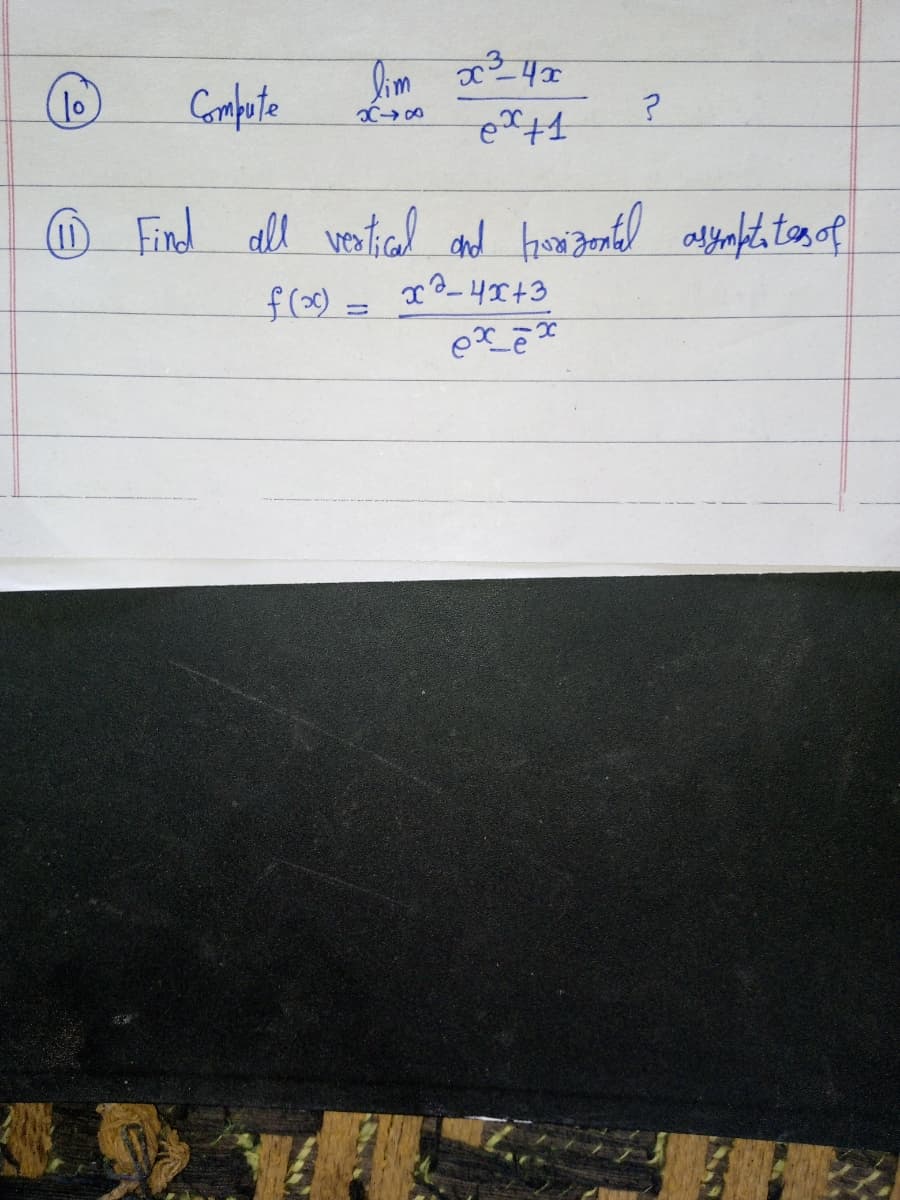 (10) Compute lim x→∞ x³-4x / eˣ+1 ?
(11) Find all vertical and horizontal asymptotes of
f(x) = x²-4x+3 / eˣ-e⁻ˣ